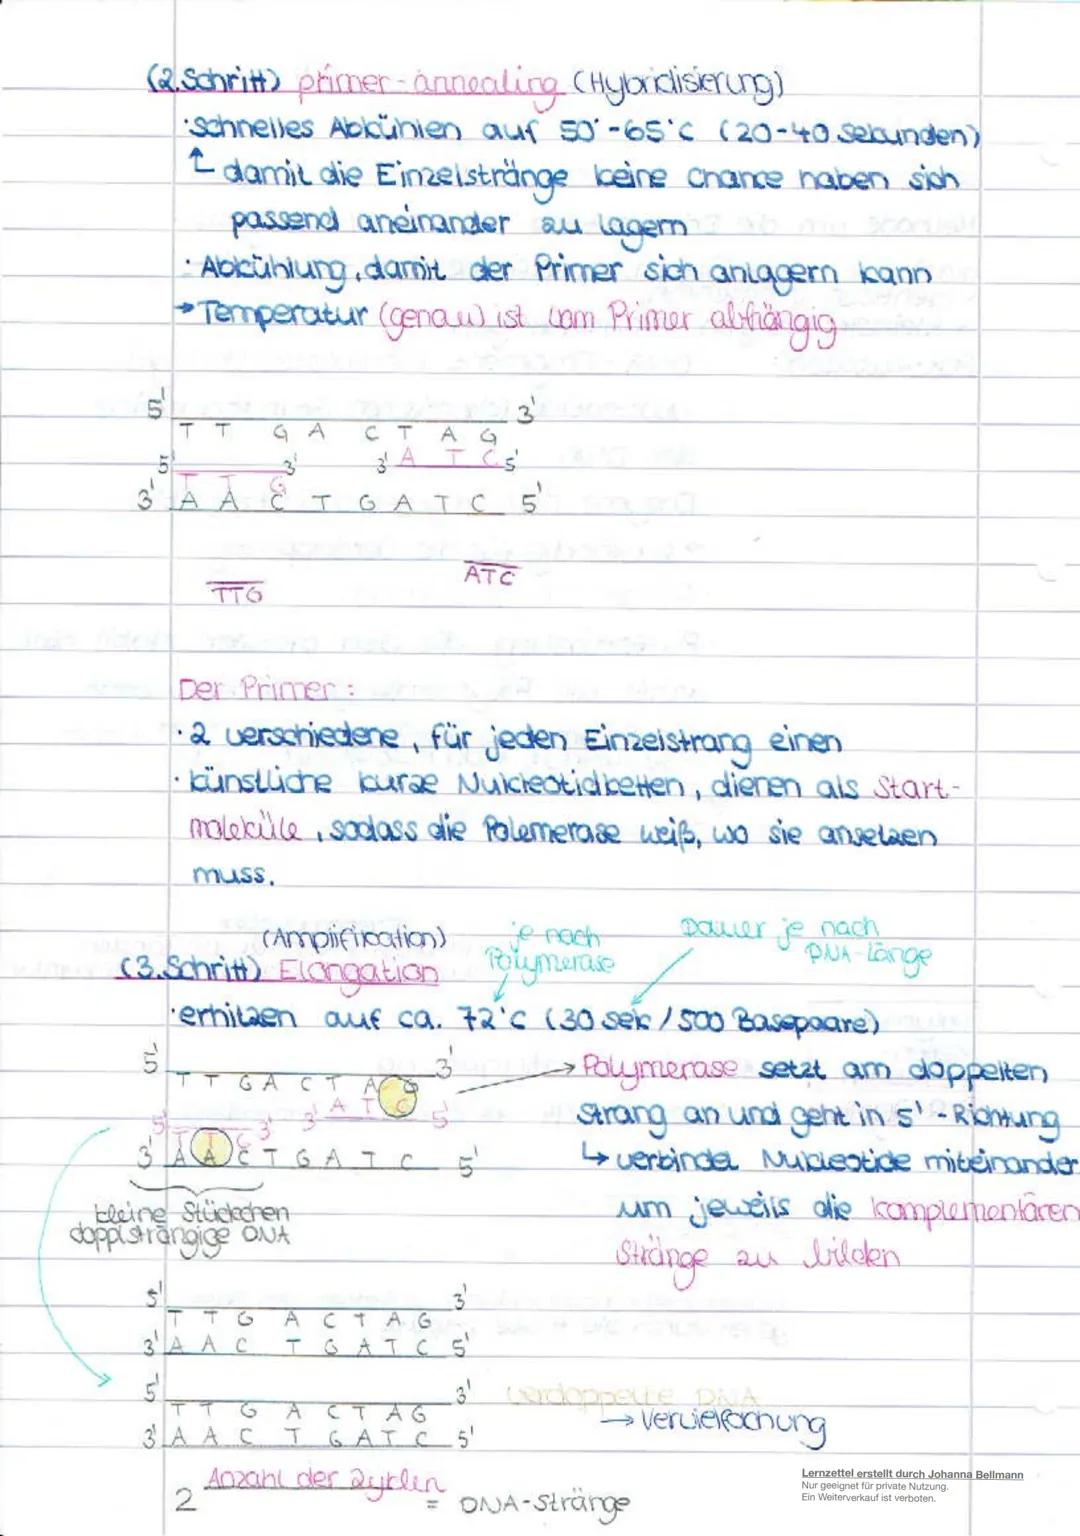 (2.Schritt) primer-annealing (Hybridisierung)
· Schnelles Abkühlen auf 50°-65°C (20-40 Sekunden)
↳ damit die Einzelstränge keine Chance haben sich
passend aneinander zu lagern
· Abkühlung, damit der Primer sich anlagern kann
→ Temperatur (genau) ist vom Primer abhängig
5' 3'
T T G A C T A G
5' 3' 3' A T C 5'
T T G
3' A A C T G A T C 5'
ATC
TTG
Der Primer:
· 2 verschiedene, für jeden Einzelstrang einen
· künstliche kurze Nukleotidketten, dienen als Start-
moleküle, sodass die Polemerase weiß, wo sie ansetzen
muss.
(Amplifikation) je nach Polymerase Dauer je nach DNA-Länge
(3.Schritt) Elongation
· erhitzen auf ca. 72°C (30 sek / 500 Basepaare)
5' 3'
T T G A C T A G
3' A T C 5'
5' T T G 3'
3' A A C T G A T C 5'
→ Polymerase setzt am doppelten
Strang an und geht in 5'-Richtung
↳ verbindet Nukleotide miteinander
um jeweils die komplementären
Stränge zu bilden
kleine Stückchen
dopplsträngige DNA
5' 3'
T T G A C T A G
3' A A C T G A T C 5'
5' 3'
T T G A C T A G
3' A A C T G A T C 5'
verdoppelte DNA
→ Vervielfachung
2 Anzahl der Zyklen = DNA-Stränge
Lernzettel erstellt durch Johanna Bellmann
Nur geeignet für private Nutzung.
Ein Weiterverkauf ist verboten.